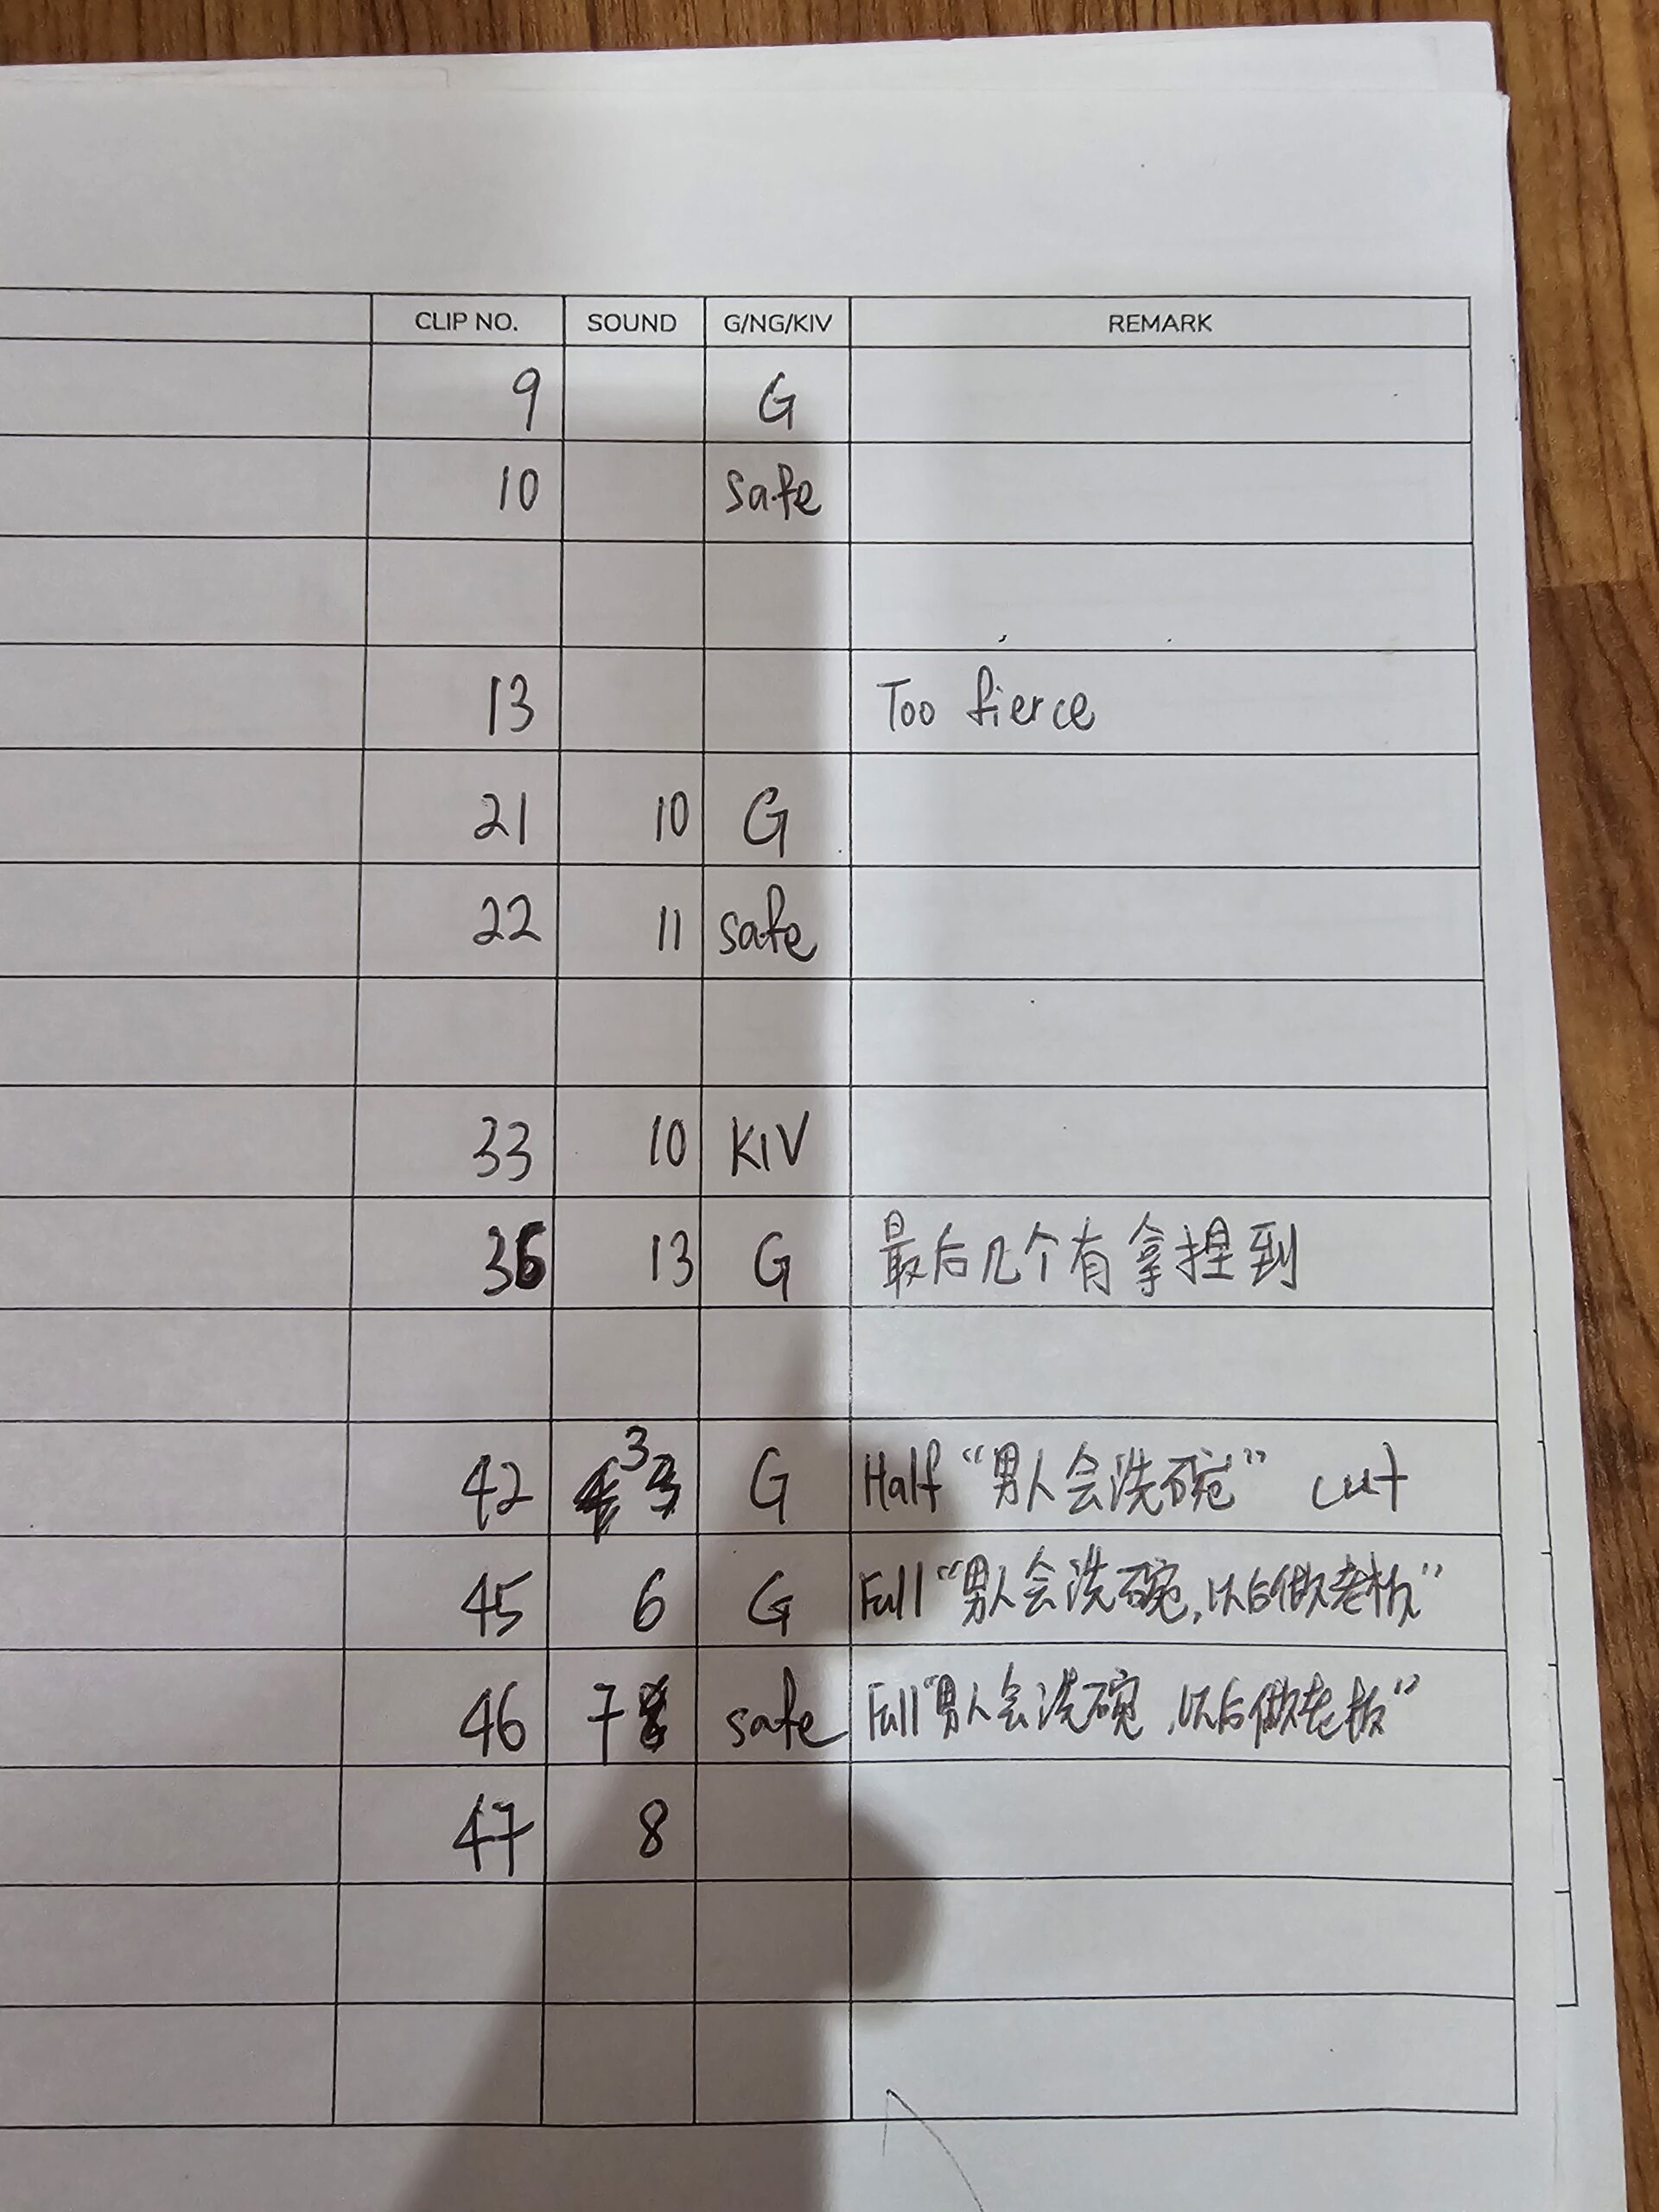 CLIP NO. SOUND G/NG/KIV REMARK
9 G
10 safe
13 Too fierce
21 10 G
22 11 safe
33 10 KIV
36 13 G 最后几个有拿捏到
42 3 G Half “男人会洗碗” cut
45 6 G Full “男人会洗碗，以后做老板”
46 7 safe Full “男人会洗碗，以后做老板”
47 8